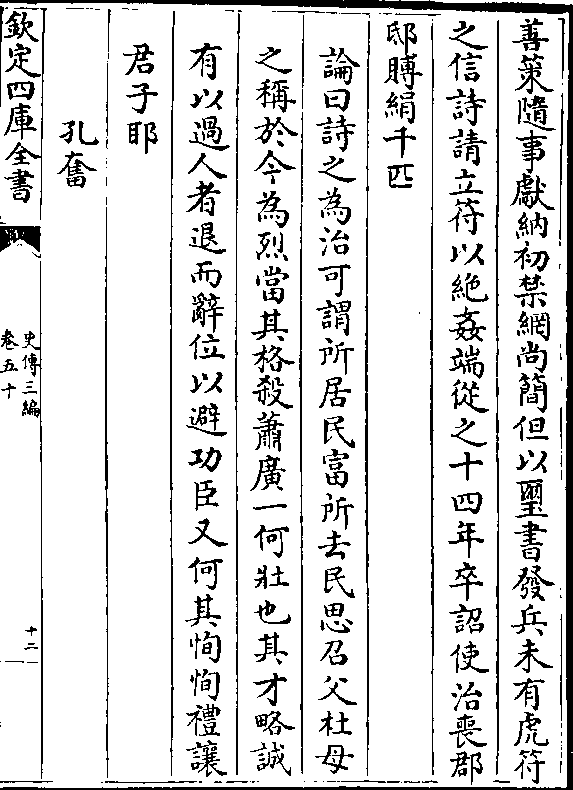 善策隨事獻納初禁網尚簡但以璽書發兵未有虎符
之信詩請立符以絶姦端從之十四年卒詔使治喪郡
邸賻絹千匹
論曰詩之為治可謂所居民富所去民思召父杜母
之稱於今為烈當其格殺蕭廣一何壯也其才略誠
有以過人者退而辭位以避功臣又何其恂恂禮讓
君子耶
孔奮
欽定四庫全書
史傳三編
卷五十
十三